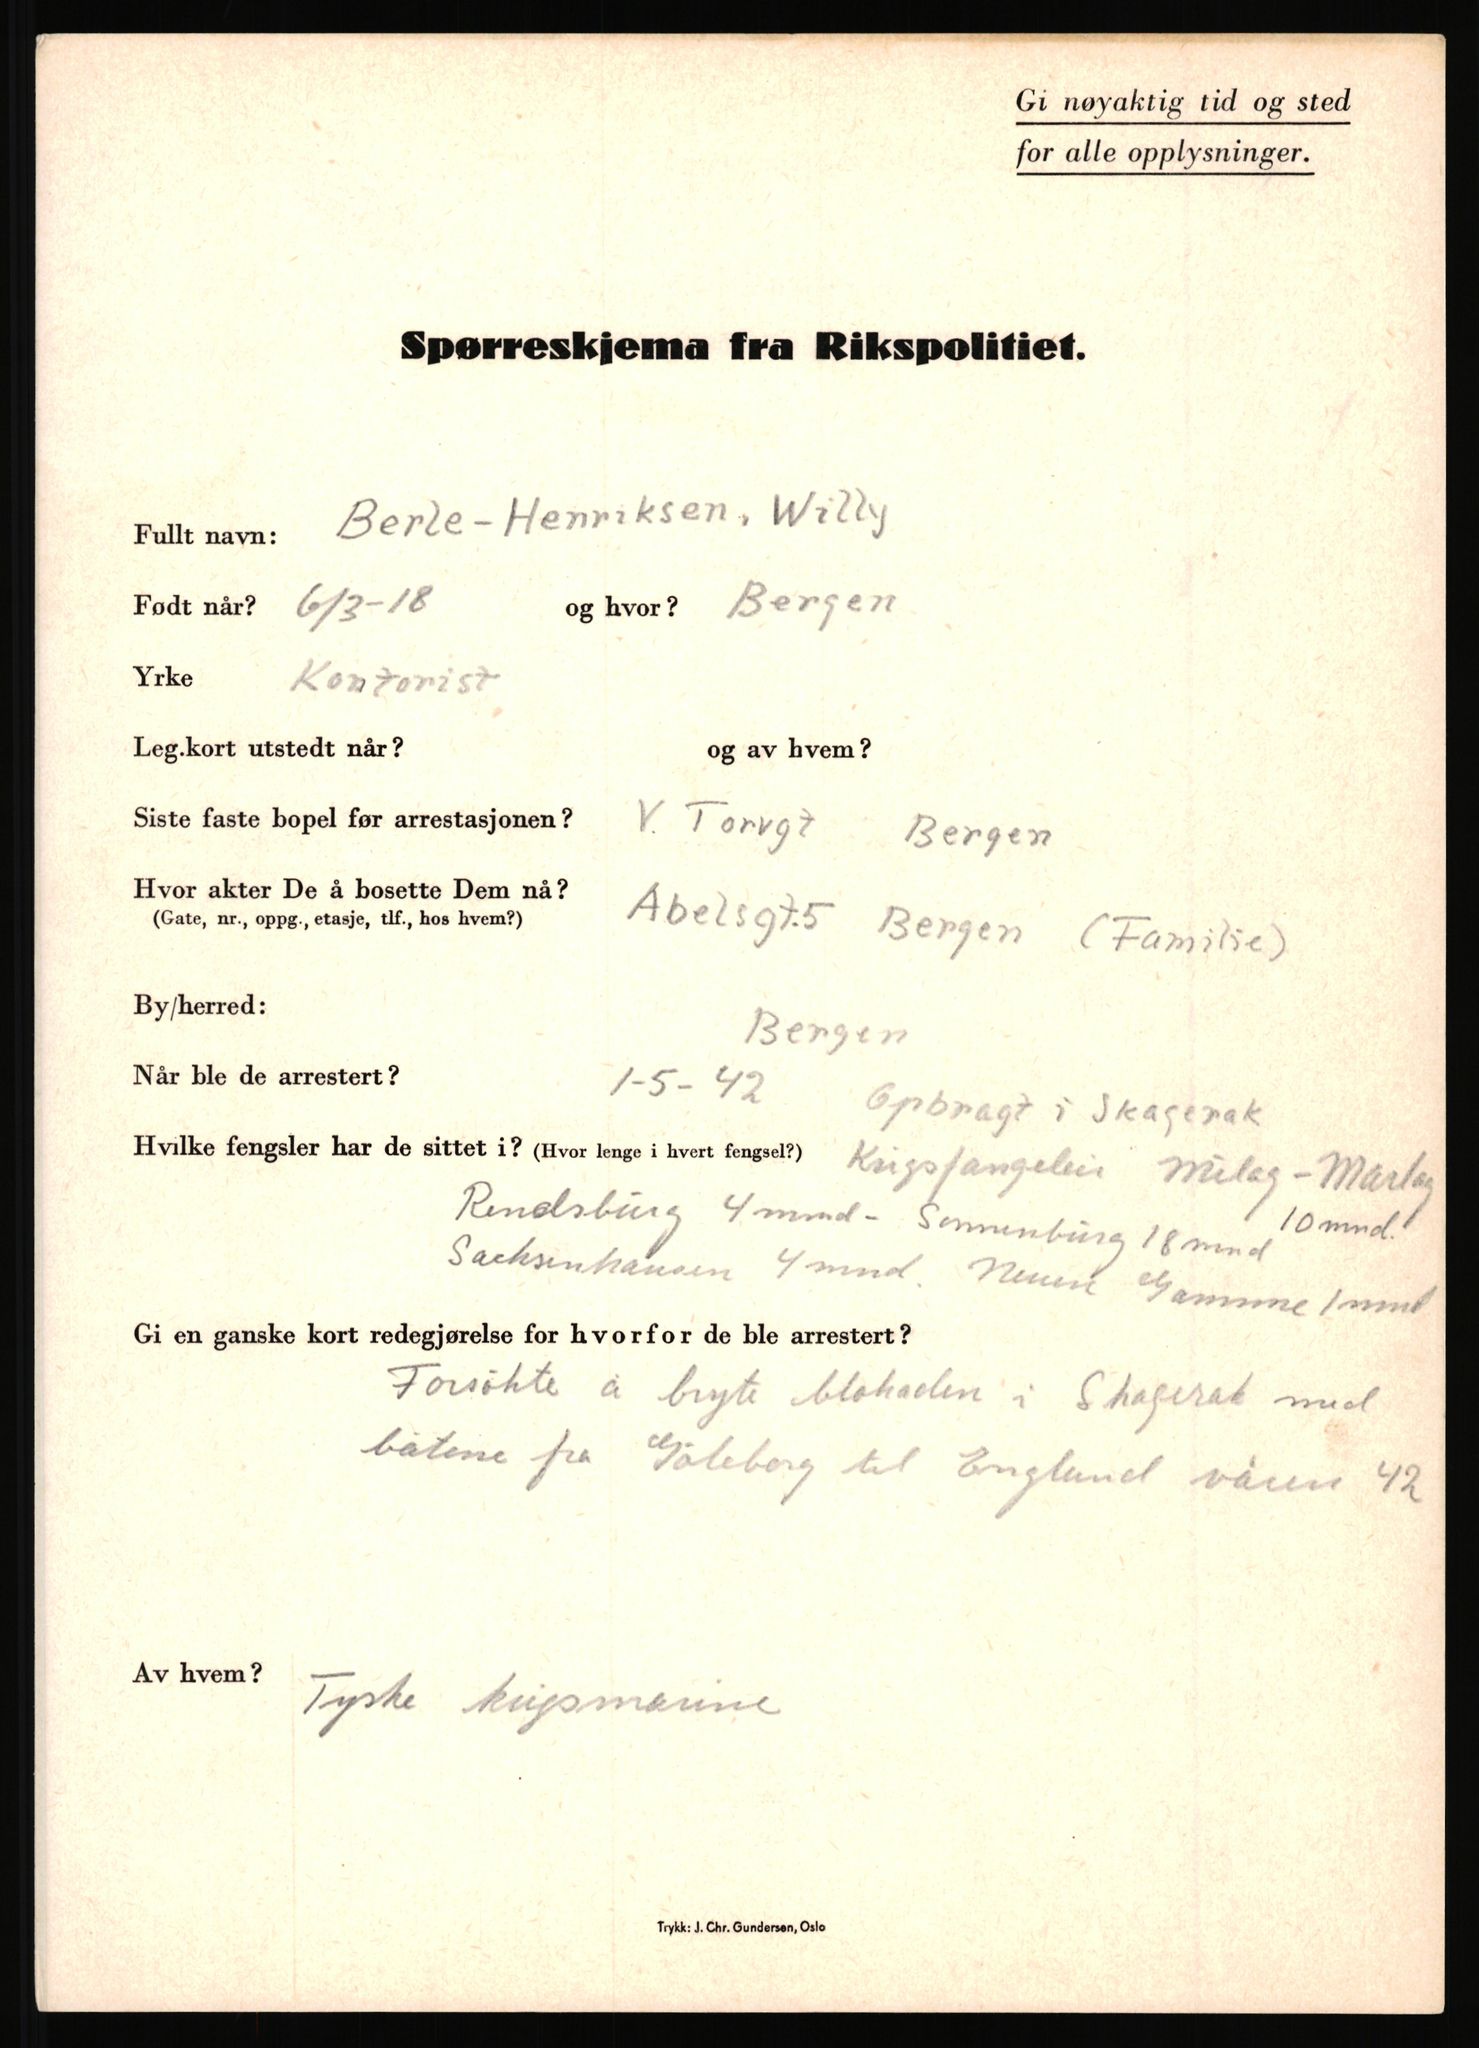 Gi nøyaktig tid og sted
for alle opplysninger.
Spørreskjema fra Rikspolitiet.
Fullt navn: Berle-Henriksen, Willy
Født når? 6/3-18 og hvor? Bergen
Yrke Kontorist
Leg.kort utstedt når? og av hvem?
Siste faste bopel før arrestasjonen? V. Torvgt Bergen
Hvor akter De å bosette Dem nå? Abelsgt.5 Bergen (Familie)
(Gate, nr., oppg., etasje, tlf., hos hvem?)
By/herred: Bergen
Når ble de arrestert? 1-5-42 Opbragt i Skagerak
Hvilke fengsler har de sittet i? (Hvor lenge i hvert fengsel?) Krigsfangeleir Milag-Marlag
10 mnd.
Rendsburg 4 mmd- Sonnenburg 18 mnd
Sachsenhausen 4 mnd. Neuen Gamme 1 mnd
Gi en ganske kort redegjørelse for hvorfor de ble arrestert?
Forsökte å bryte blokaden i Skagerak med
båtene fra Göteborg til England våren 42
Av hvem? Tyske krigsmarine
Trykk: J. Chr. Gundersen, Oslo